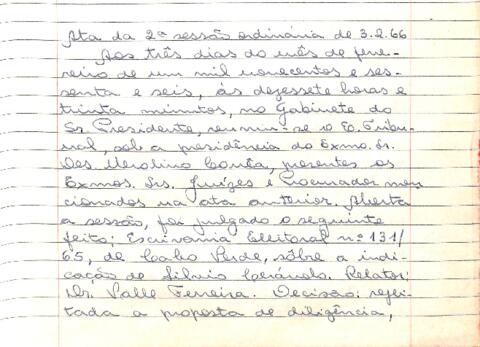 Ata da 2ª sessão ordinária de 3.2.66
Aos três dias do mês de feve-
reiro de um mil novecentos e ses-
senta e seis, às dezessete horas e
trinta minutos, no Gabinete do
Sr. Presidente, reuniu-se o E. Tribu-
nal, sob a presidência do Exmo. Sr.
Des. Merolino Corrêa, presentes os
Exmos. Srs. Juízes e Procurador men
cionados na ata anterior. Aberta
a sessão, foi julgado o seguinte
feito: Escrivania Eleitoral nº 131/
65, de Cabo Verde, sôbre a indi-
cação de Silvio. Relator:
Dr. Valle Ferreira. Decisão: rejei-
tada a proposta de diligência,